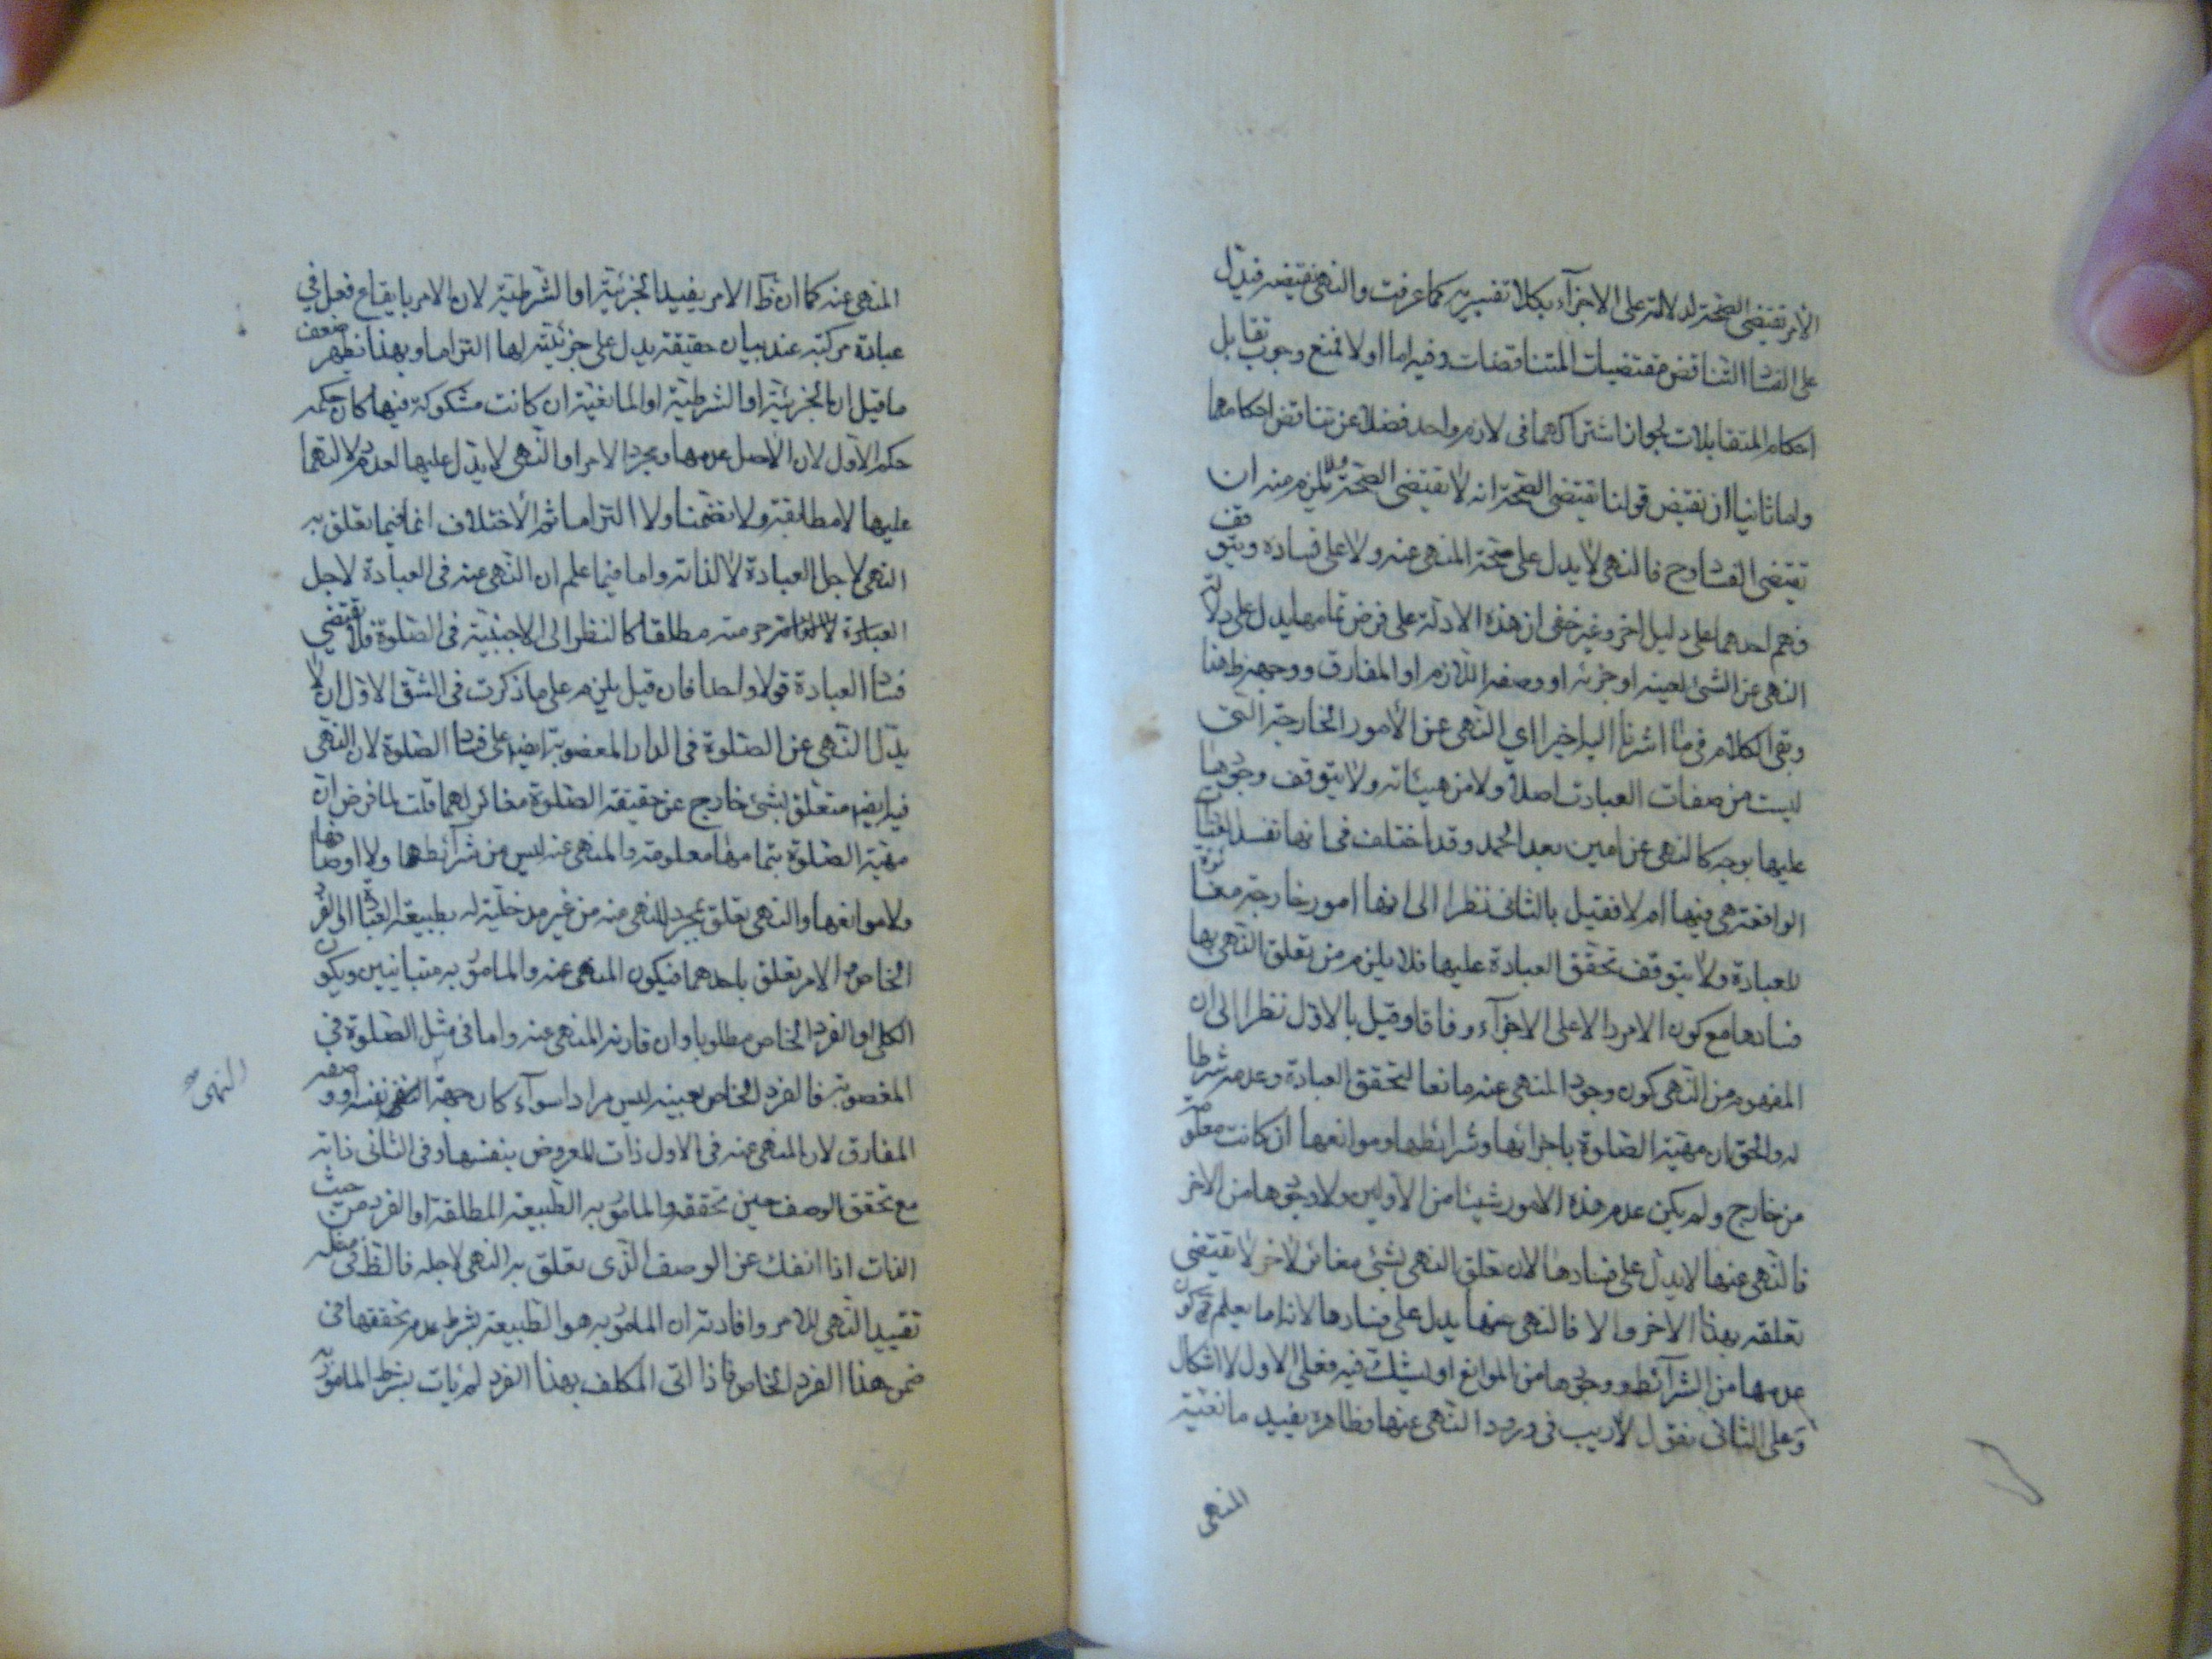 الأمر تقتضى الصّحّة لدلالته على الاجزآء بكلا تفسيريه كما عرفت والنهى نقيضه فيدلّ
على الفساد التناقض مقتضيات المتناقضات وفيه اما اولا فمنع وجوب تقابل
احكام المتقابلات لجواز اشتراكهما فى لازم واحد فضلا عن تناقض احكامهما
واما ثانيا ان نقيض قولنا يقتضى الصّحّة انه لا يقتضى الصّحّة ولا يلزم منه ان
تقتضى الفساد وح فالنهى لا يدل على صحّة المنهى عنه ولا على فساده ويتوقف
فهم احدهما على دليل اخر وغير خفى ان هذه الادلّة على فرض تمامها يدل على دلالة
النهى عن الشئ لعينه او جزئه او وصفه اللازم او المفارق ووجهه ظ هنا
وبقى الكلام فى ما اشرنا اليه اخيرا اي النّهى عن الأمور الخارجة التى
ليست من صفات العبادت اصلا ولا من هيئاته ولا يتوقف وجودها
عليها بوجه كالنهى عن امين بعد الحمد وقد اختلف فى انها تفسد العبادة
الواقعة هى فيها ام لا فقيل بالثانى نظرا الى انها امور خارجة مغائرة
للعبادة ولا يتوقف تحقق العبادة عليها فلا يلزم من تعلق النّهى بها
فسادها مع كون الامر دالا على الاجزآء وفاقا وقيل بالاوّل نظرا الى ان
المفهوم من النّهى كون وجود المنهى عنه مانعا لتحقق العبادة وعدمه شرطا
له والحق ان مهيّة الصّلوة باجزائها وشرائطها وموانعها ان كانت معلومة
من خارج ولم يكن عدم هذه الامور شيئا من الاولين ولا وجودها من الاخر
فالنّهى عنها لا يدلّ على فسادها لان تعلق النهى بشئ مغائر لاخر لا يقتضى
تعلقه بهذا الاخر والا فالنهى عنها يدل على فسادها لانه اما يعلم كون
عدمها من الشرآئط ووجودها من الموانع او يشكّ فيه فعلى الاول لا اشكال
وعلى الثانى نقول لا ريب فى ورود النّهى عنها وظاهره يفيد مانعيّة
المنهى
المنهى عنه كما ان ظ الامر يفيد الجزئيّة او الشرطيّة لان الامر بايقاع فعل في
عبادة مركبة عند بيان حقيقته يدل على جزئيّته لها التزاما وبهذا يظهر ضعف
ما قيل ان الجزئيّة او الشرطيّة او المانعيّة ان كانت مشكوكة فيها كان حكمه
حكم الاول لان الاصل عدمها ومجرد الامر او النّهى لا يدل عليها لعدم دلالتهما
عليها لا مطابقة ولا تضمنا ولا التزاما ثم الأختلاف انما فيما تعلق به
النهى لاجل العبادة لا لذاته واما فيما علم ان النّهى عنه فى العبادة لا لاجل
العبادة حرمته مطلقا كالنظر الى الاجنبيّة فى الصّلوة فلا يقتضي
فساد العبادة قولا واحدا فان قيل يلزم على ما ذكرت فى الشق الاوّل ان لا
يدّل النّهى عن الصّلوة فى الدار المغصوبة ايضا على فساد الصّلوة لان النّهى
فيه ايضا متعلّق بشئ خارج عن حقيقة الصّلوة مغائر لهما قلت لما فرض ان
مهيّة الصّلوة بتمامها معلومة والمنهى عنه ليس من شرآئطها ولا اوصافها
ولا موانعها والنهى تعلق بمجرد المنهى عنه من غير مدخليّة له بطبيعة العبادة او الفرد
الخاص والامر تعلق باحدهما فيكون المنهى عنه والمامور به متباينين ويكون
الكلى او الفرد الخاص مطلوبا وان قارنه المنهى عنه واما فى مثل الصّلوة في
المغصوبة فالفرد الخاص بعينه ليس مرادا سوآء كان جهة النهى نفسه او وصفه
المفارق لان المنهى عنه فى الاول ذات المعروض بنفسها وفى الثانى ذاته
مع تحقق الوصف حين تحققه والمامور به الطّبيعة المطلقة او الفرد من حيث
الذات اذا انفك عن الوصف الّذى تعلق به النهى لاجله فالظ فى مثله
تقييد النّهى للامر وافادته ان المامور به هو الطّبيعة بشرط عدم تحققها فى
ضمن هذا الفرد الخاص فاذا اتى المكلف بهذا الفرد لم يات بشرط المامور به
النهى صح